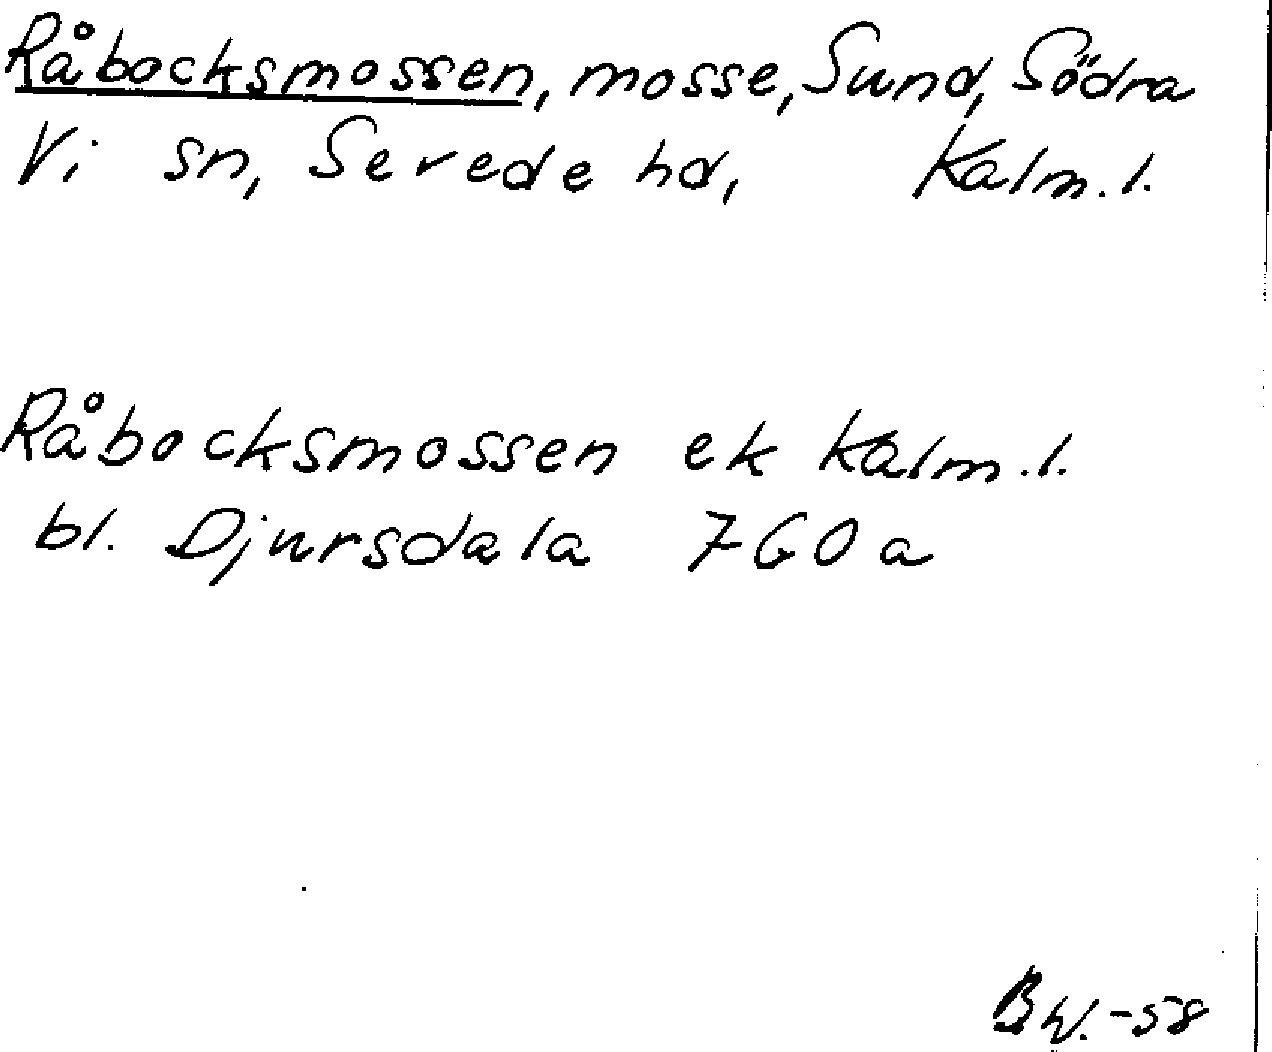 Råbocksmossen, mosse, Sund, Södra
Vi sn, Sevede hd, Kalm. l.
Råbocksmossen ek Kalm. l.
bl. Djursdala 7GO a
BW.-58